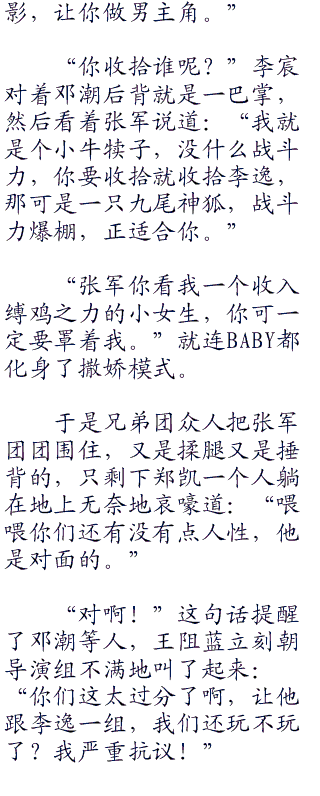 影，让你做男主角。”
“你收拾谁呢？”李宸
对着邓潮后背就是一巴掌，
然后看着张军说道：“我就
是个小牛犊子，没什么战斗
力，你要收拾就收拾李逸，
那可是一只九尾神狐，战斗
力爆棚，正适合你。”
“张军你看我一个收入
缚鸡之力的小女生，你可一
定要罩着我。”就连BABY都
化身了撒娇模式。
于是兄弟团众人把张军
团团围住，又是揉腿又是捶
背的，只剩下郑凯一个人躺
在地上无奈地哀嚎道：“喂
喂你们还有没有点人性，他
是对面的。”
“对啊！”这句话提醒
了邓潮等人，王阻蓝立刻朝
导演组不满地叫了起来：
“你们这太过分了啊，让他
跟李逸一组，我们还玩不玩
了？我严重抗议！”